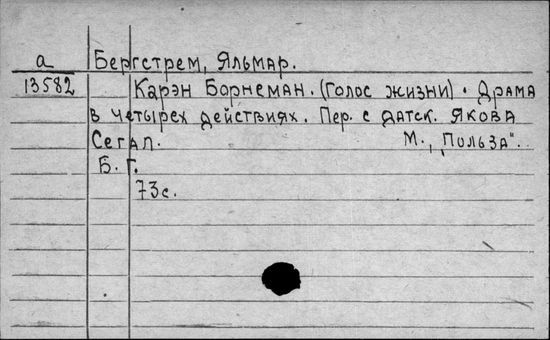 а Бергстрем, Яльмар.
13582 Карэн Борнеман. (Голос жизни). Драма
в четырех действиях. Пер. с датск. Якова
Сегал. М., „Польза".
Б. Г.
73с.